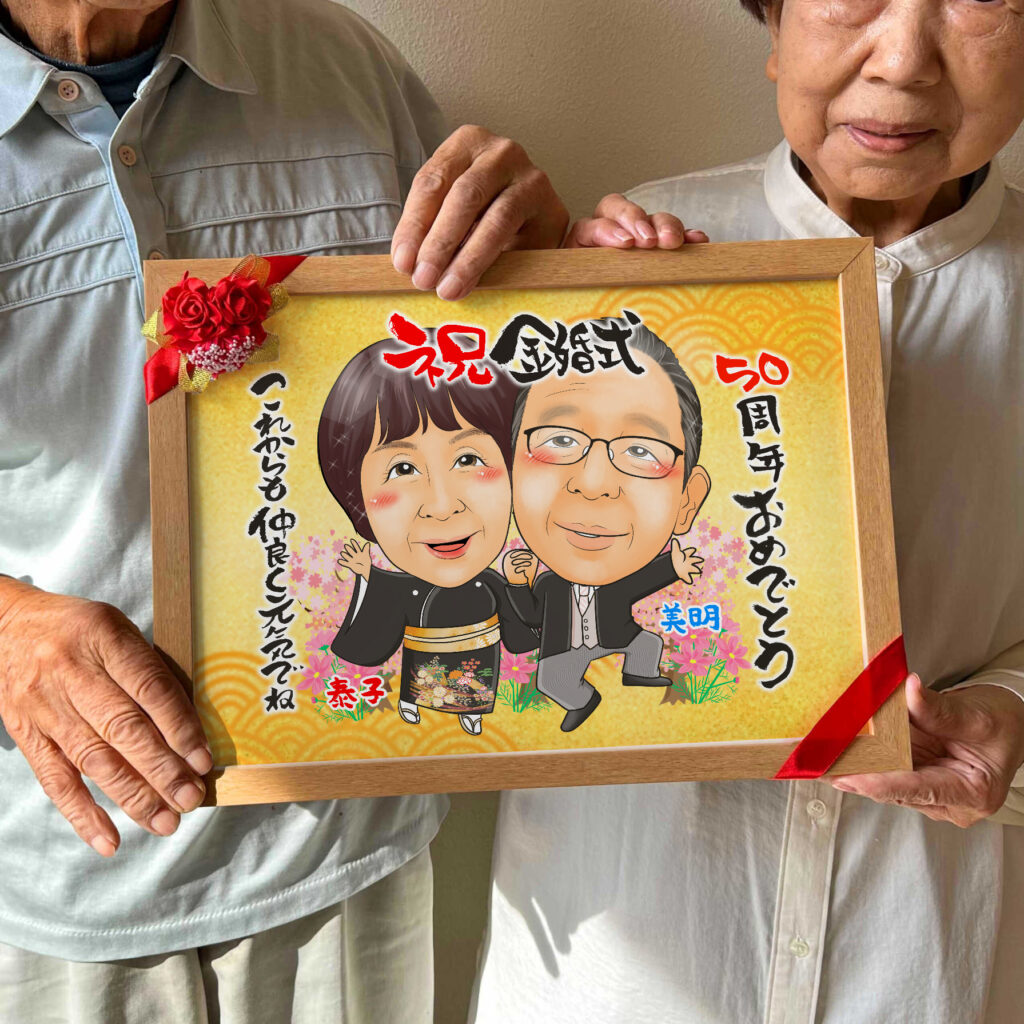 祝 金婚式
50周年おめでとう
これからも仲良く元気でね
美明
泰子